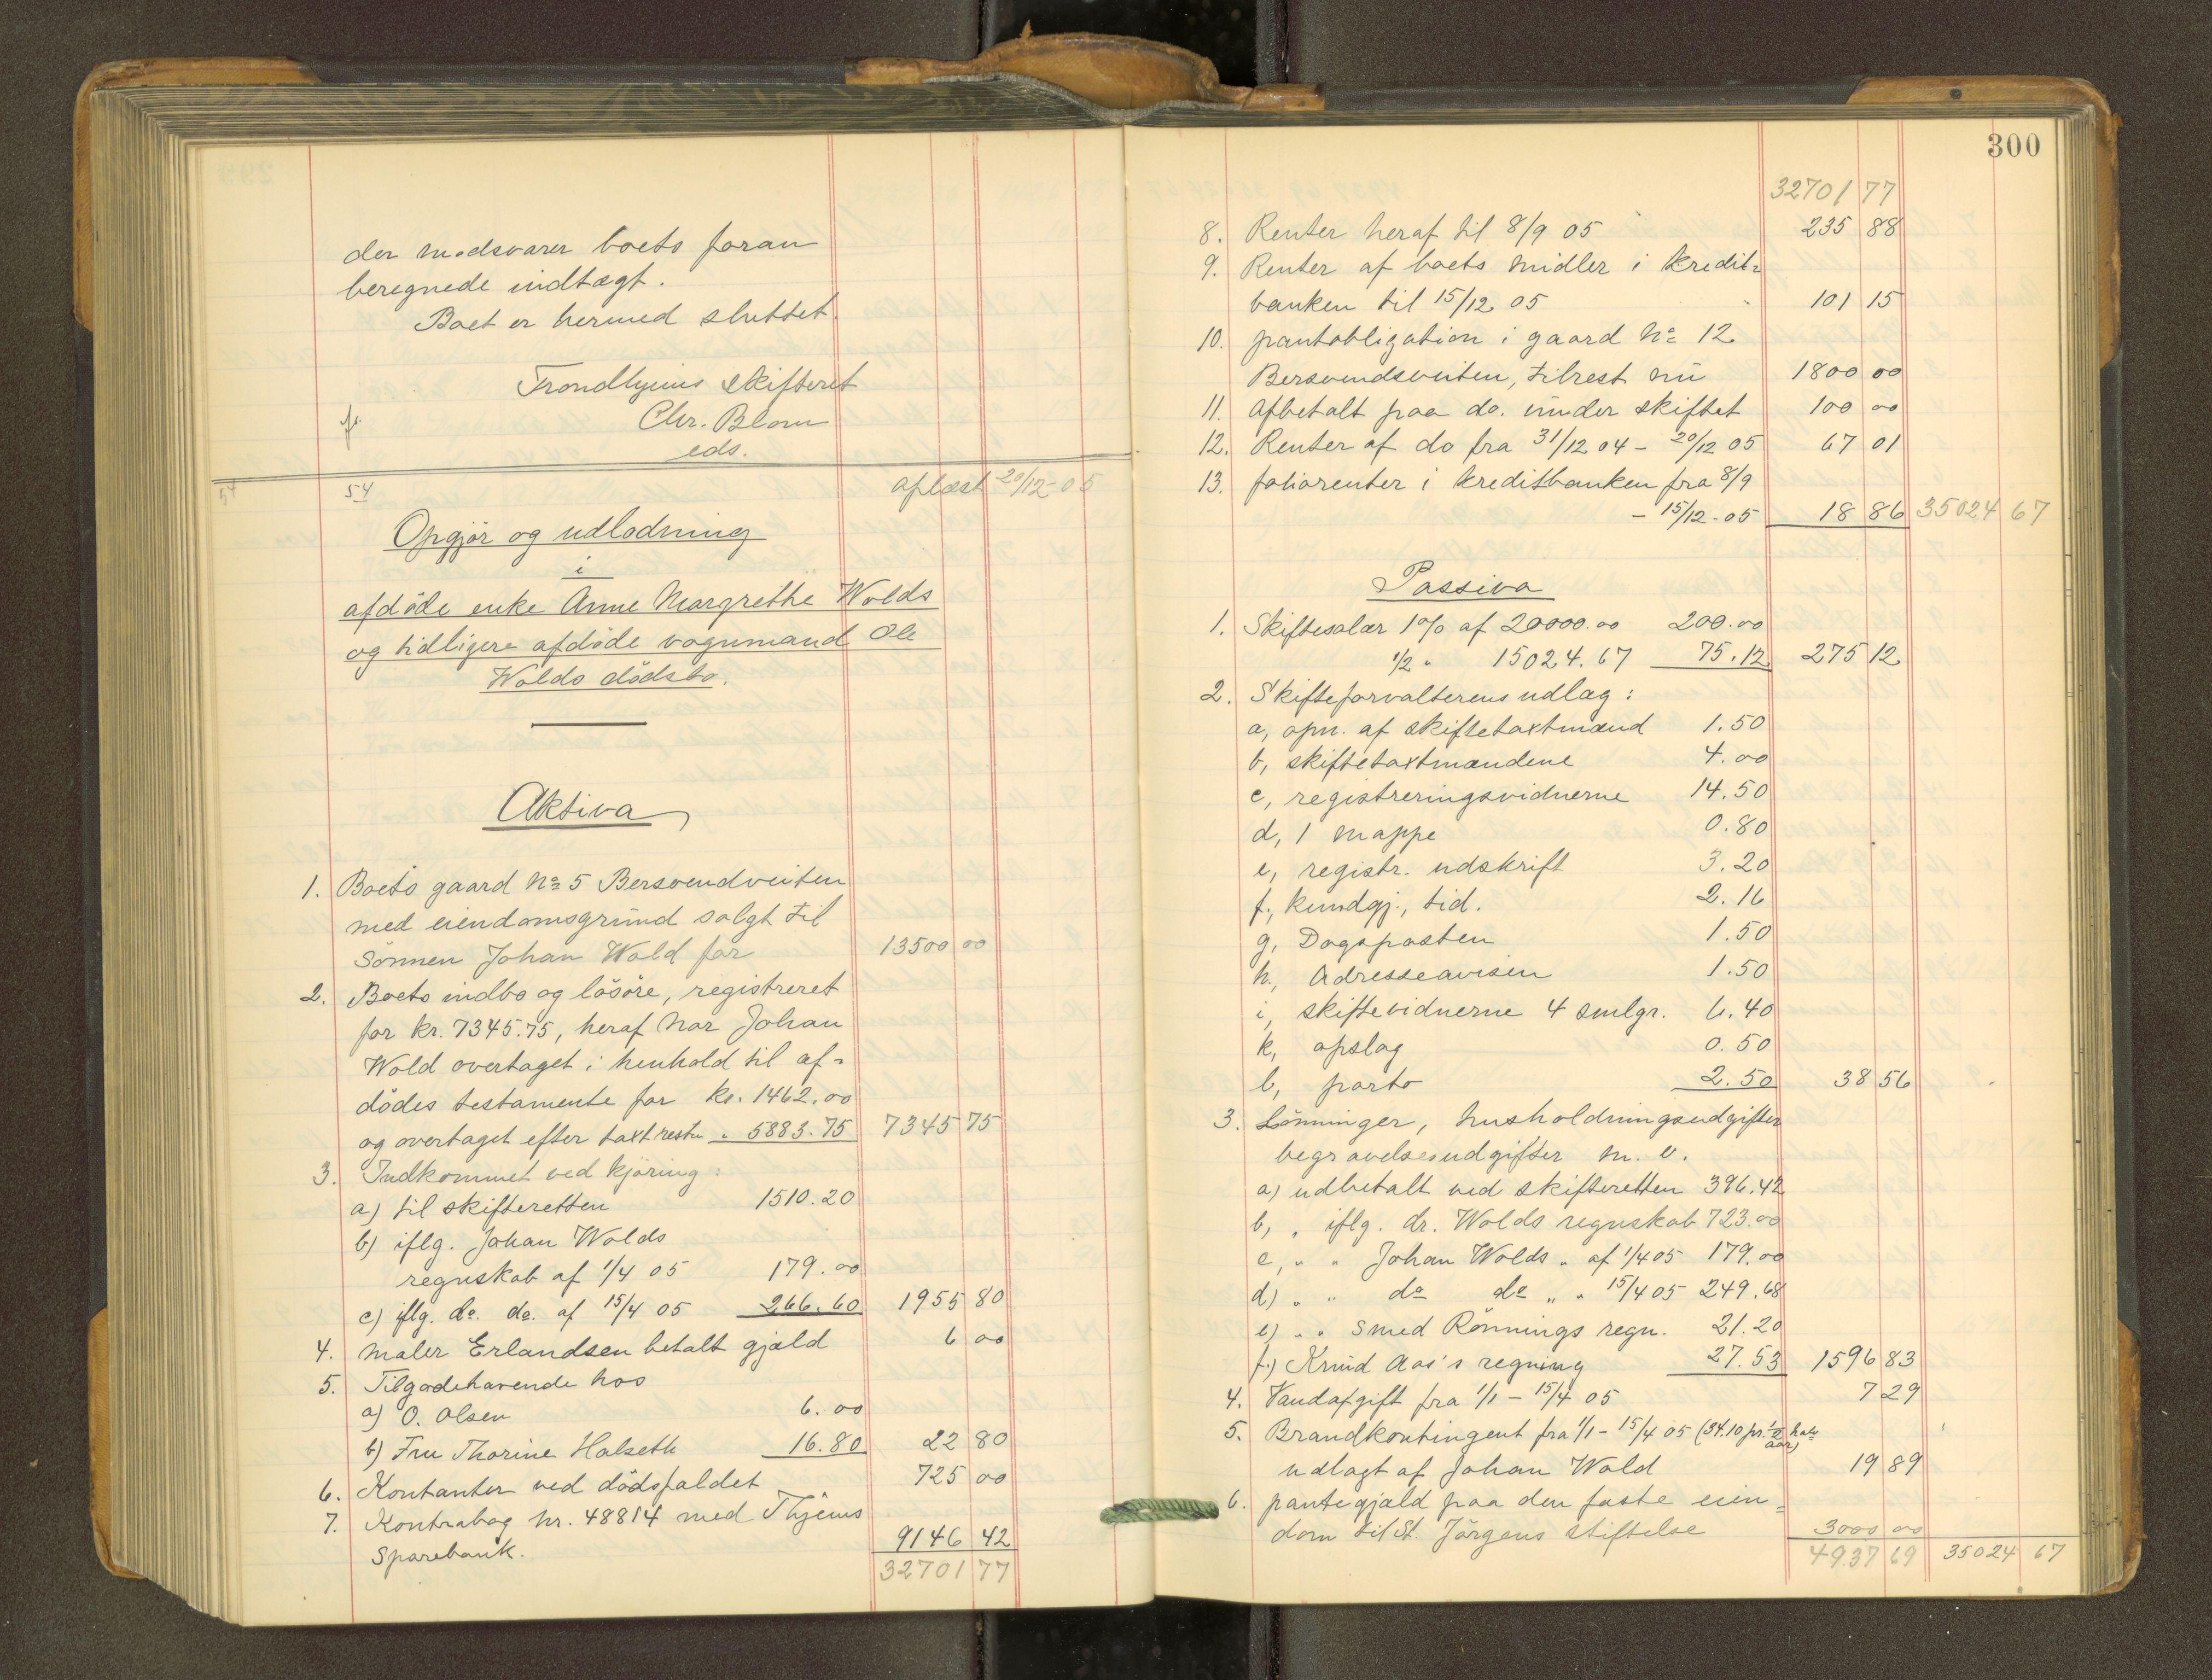 der modsvarer boets foran
beregnede indtægt.
Boet er hermed sluttet.
Trondhjems skifteret
Chr. Blom
eds.
54 aflæst 20/12-05
Opgjör og udlodning
i
afdöde enke Anne Margrethe Wolds
og tidligere afdöde vognmand Ole
Wolds dödsbo.
Aktiva
1. Boets gaard No 5 Bersvendveiten
med eiendomsgrund solgt til
Sönnen Johan Wold for 13500 00
2. Boets indbo og lösöre, registreret
for kr. 7345.75, heraf har Johan
Wold overtaget i henhold til af-
dödes testamente for kr. 1462.00
og overtaget efter taxt resten " 5883.75 7345 75
3. Indkommet ved kjöring:
a) til skifteretten 1510.20
b) iflg. Johan Wolds
regnskab af 1/4 05 179.00
c) iflg. do. do. af 15/4 05 266.60 1955 80
4. Maler Erlandsen betalt gjæld 6 00
5. Tilgodehavende hos
a) O. Olsen 6.00
b) Fru Thorine Halseth 16.80 22 80
6. Kontanter ved dödsfaldet 725 00
7. Kontrabog nr. 48814 med Thjems
Sparebank. 9146 42
32701 77
300
32701 77
8. Renter heraf til 8/9 05 235 88
9. Renter af boets midler i kredit-
banken til 15/12 05 101 15
10. pantobligation i gaard No 12
Bersvendsveiten, tilrest nu 1800 00
11. Afbetalt paa do. under skiftet 100 00
12. Renter af do fra 31/12 04 - 20/12 05 67 01
13. foliorenter i kreditbanken fra 8/9
- 15/12-05 18 86 35024 67
Passiva
1. Skiftesalær 1% af 20000.00 200.00
1/2 " 15024.67 75.12 275 12
2. Skifteforvalterens udlæg:
a, opn. af skiftetaxtmænd 1.50
b, skiftetaxtmændene 4.00
c, registreringsvidnerne 14.50
d, 1 mappe 0.80
e, registr. udskrift 3.20
f., kundgj., tid. 2.16
g, Dagsposten 1.50
h., Adresseavisen 1.50
i, skiftevidnerne 4 smlgr. 6.40
k, opslag 0.50
l, porto 2.50 38 56
3. Lönninger, husholdningsudgifter
begravelsesudgifter m. v.
a) udbetalt ved skifteretten 396.42
b, " iflg. dr. Wolds regnskab 723.00
c, " " Johan Wolds " af 1/4 05 179.00
d) " " do do " " 15/4 05 249.68
e) " " smed Rönnings regn. 21.20
f.) Knud Aas's regning 27.53 1596 83
4. Vandafgift fra 1/1 - 15/4 05 7 29
5. Brandkontingent fra 1/1 - 15/4 05 (34.10 pr. 1/2 halv
aar)
udlagt af Johan Wold 19 89
6. pantegjæld paa den faste eien-
dom til St. Jörgens stiftelse 3000 00
4937 69 35024 67